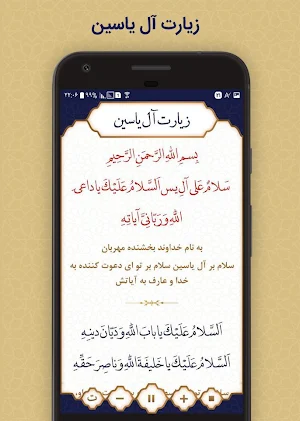 زیارت آل یاسین
۲۲:۰۶ ۹۹%
زیارت آل یاسین
بِسمِ اللهِ الرَّحمَنِ الرَّحِیمِ
سَلامُ عَلَی آلِ یس اَلسَّلامُ عَلَیْکَ یا داعِیَ
اللّٰهِ وَ رَبّانِیَّ آیاتِهِ
به نام خداوند بخشنده مهربان
سلام بر آل یاسین سلام بر تو ای دعوت کننده به
خدا و عارف به آیاتش
اَلسَّلامُ عَلَیْکَ یا بابَ اللّٰهِ وَ دَیّانَ دینِهِ
اَلسَّلامُ عَلَیْکَ یا خَلیفَةَ اللّٰهِ وَ ناصِرَ حَقِّهِ
ت